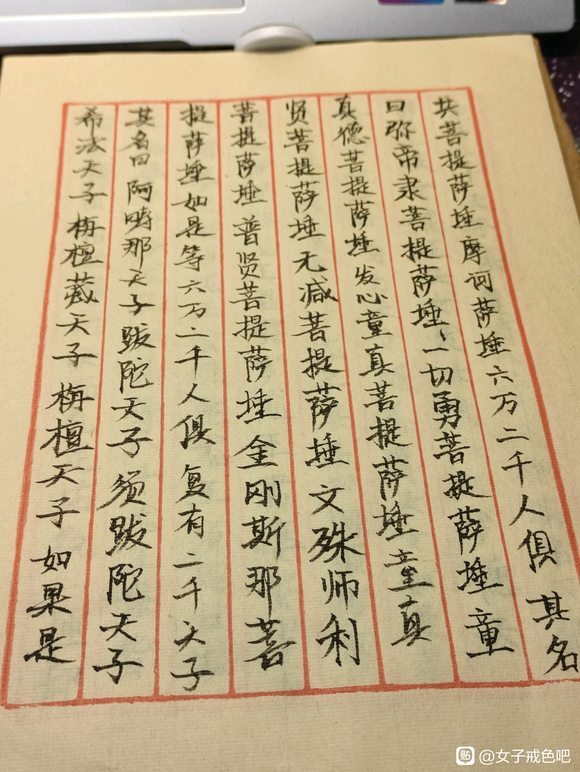 共菩提萨埵摩诃萨埵六万二千人俱其名
曰弥帝隶菩提萨埵、一切勇菩提萨埵童
真德菩提萨埵发心童真菩提萨埵童真
贤菩提萨埵无减菩提萨埵文殊师利
菩提萨埵普贤菩提萨埵金刚斯那菩
提萨埵如是等六万二千人俱复有二千天子
其名曰阿畴那天子跋陀天子须跋陀天子
希法天子栴檀藏天子栴檀天子如果是
贴 @女子戒色吧